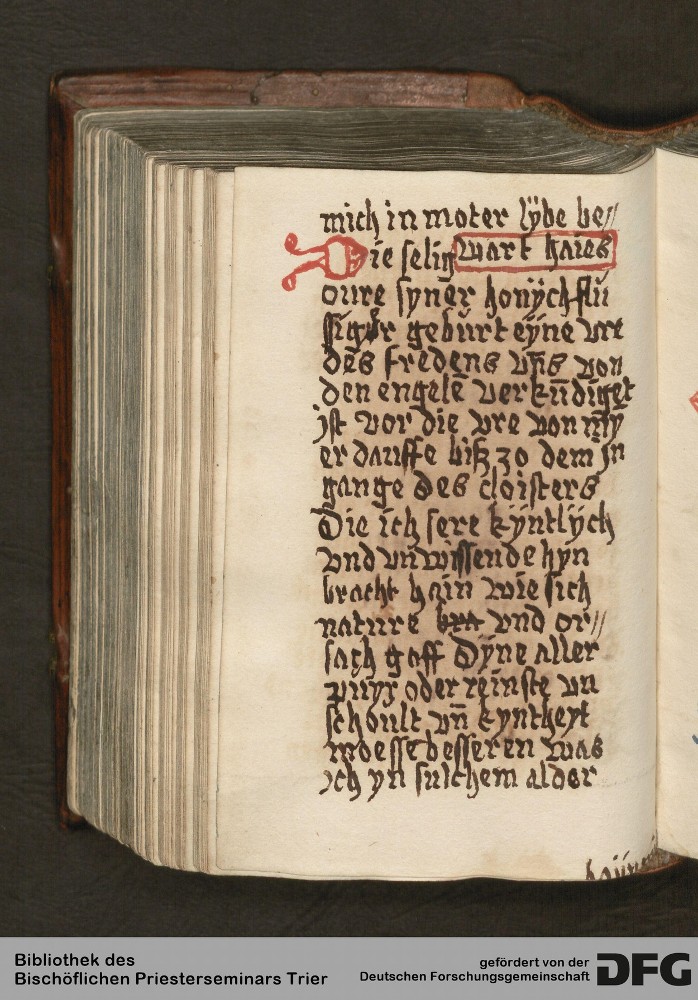 mich in moter lÿbe be//
Die selig wart haies
oure syner honÿchflü
ssiger gebürt eÿne vre
des fredens vn̄s von
den engelē verkün̄diget
ist vor die vre von mȳ
er dauffe biß zo dem jn
gange des cloisters
Die ich sere kÿntlÿch
vnd vnwissende hÿn
bracht hain wie sich
nature bra vnd or//
sach gaff Dÿne aller
puyr oder reinste vn
schoult vn̄ kyntheyt
moesse besseren was
ich yn sulchem alder
Bibliothek des
Bischöflichen Priesterseminars Trier
gefördert von der
Deutschen Forschungsgemeinschaft
DFG